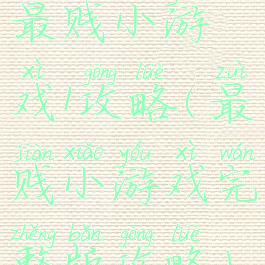 最贱小游
xì gōng lüè zuì
戏1攻略(最
jiàn xiǎo yóu xì wán
贱小游戏完
zhěng bǎn gōng lüè
整版攻略)